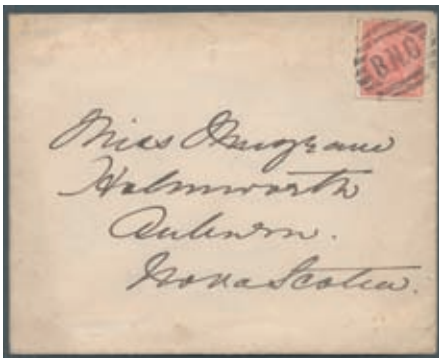 B.N.C
Miss Musgrave
Holmworth
Auburn.
Nova Scotia.